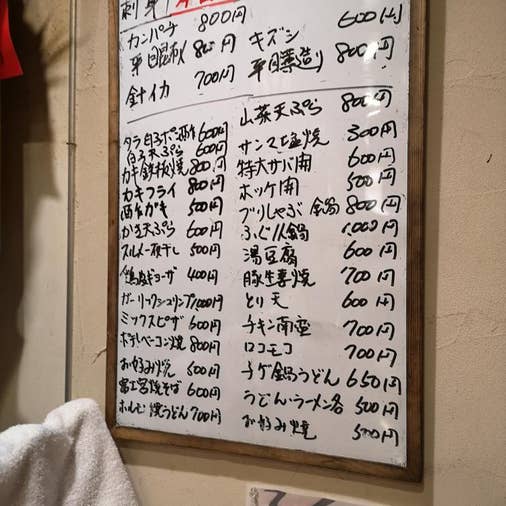 刺身
カンパチ 800円
平目昆布〆 800円
針イカ 700円
キズシ 600円
平目薄造り 800円
タラ白子ポン酢 600円
白子天ぷら 600円
カキ鉄板焼 800円
カキフライ 800円
酢ガキ 500円
かき天ぷら 600円
スルメ一夜干し 500円
ギョーザ 400円
ガーリックシュリンプ 1000円
ミックスピザ 600円
ポテトベーコン焼 800円
お好み焼 500円
富士宮焼そば 600円
ホルモン焼うどん 700円
山菜天ぷら 800円
サンマ塩焼 300円
特大サバ開 600円
ホッケ開 500円
ブリしゃぶ鍋 800円
ふぐ小鍋 1,000円
湯豆腐 600円
豚生姜焼 700円
とり天 600円
チキン南蛮 700円
ロコモコ 700円
チゲ鍋うどん 650円
うどん・ラーメン各 500円
お好み焼 500円